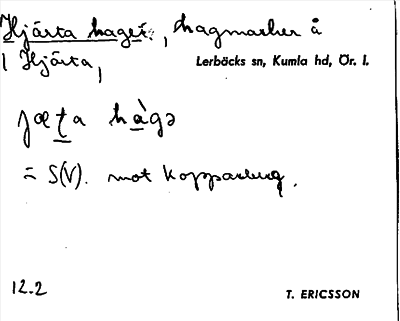 Hjärta hage, hagmarker å
| Hjärta,
Lerbäcks sn, Kumla hd, Ör. l.
jæta hàgə
= S(V). mot Kopparberg.
12.2
T. ERICSSON